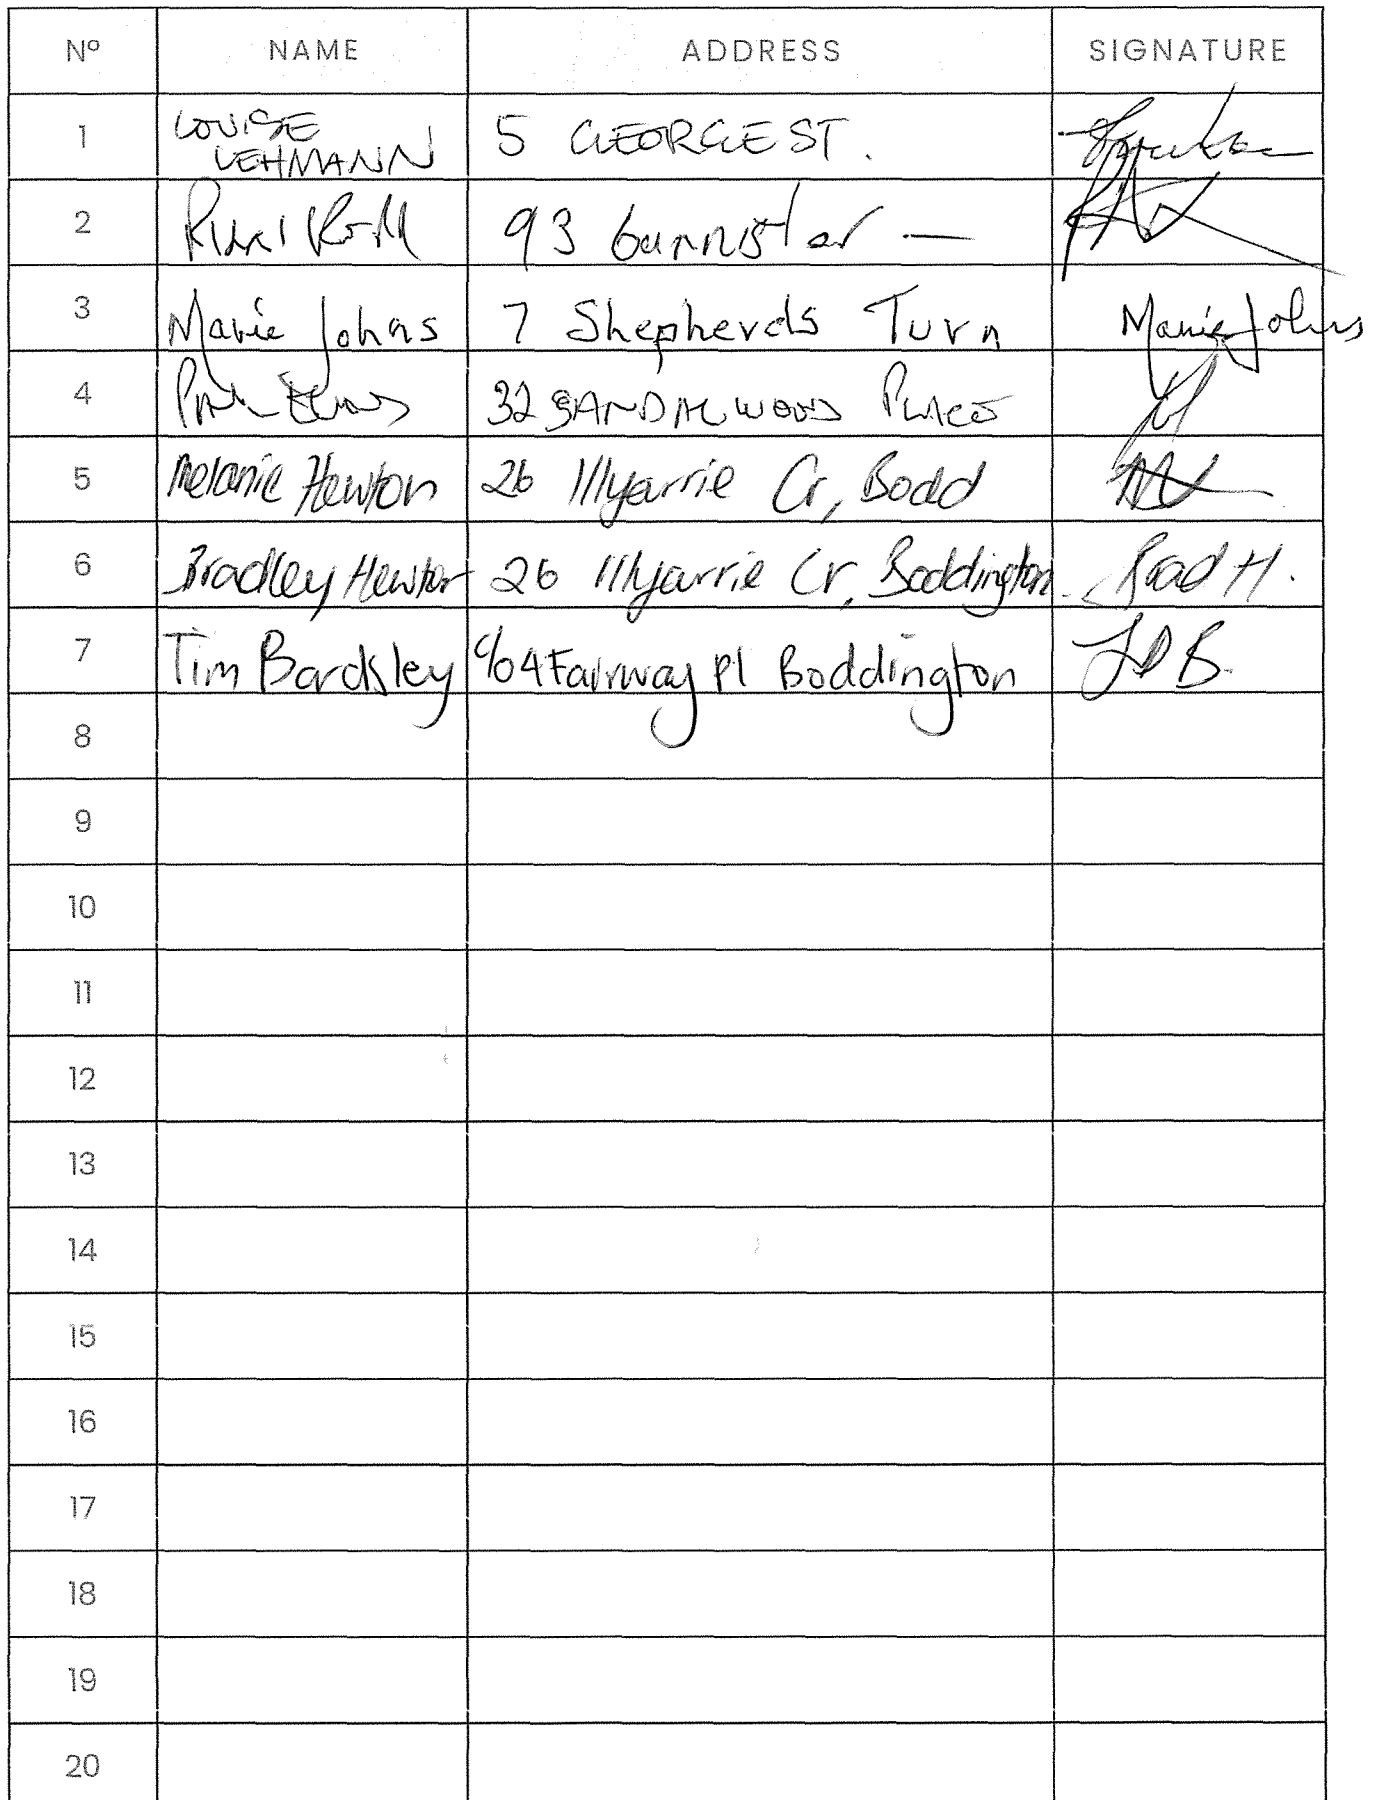 Nº NAME ADDRESS SIGNATURE
1 LOUISE LEHMANN 5 GEORGE ST.
2 93 bannister —
3 Marie Johns 7 Shepherds Turn Marie Johns
4 32 SANDALWOOD PLACE
5 Melanie Hewton 26 Illyarrie Cr, Bodd
6 Bradley Hewton 26 Illyarrie Cr, Boddington. Brad H.
7 Tim Bardsley c/o 4 Fairway Pl Boddington
8
9
10
11
12
13
14
15
16
17
18
19
20